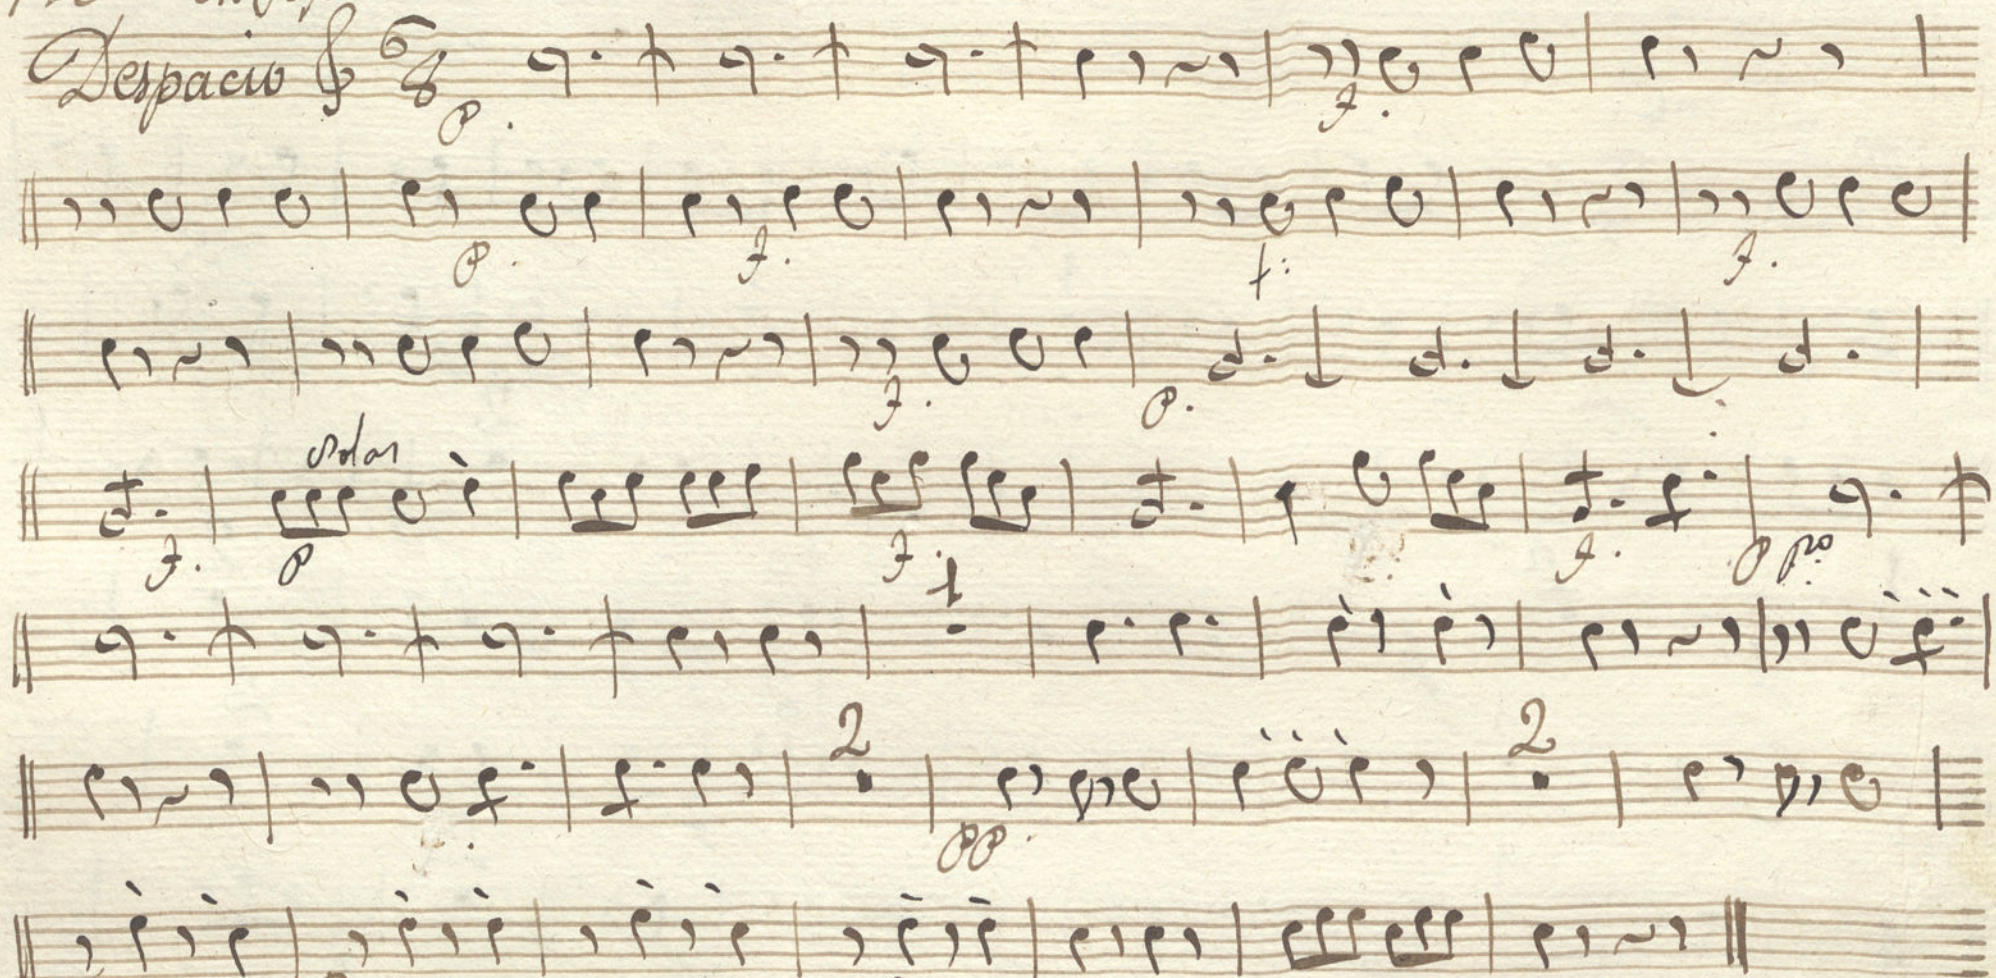 Despacio 6/8
P. F.
P. F. f: F.
F. P.
solos
F. P F. F. P po
1
2 2
PP